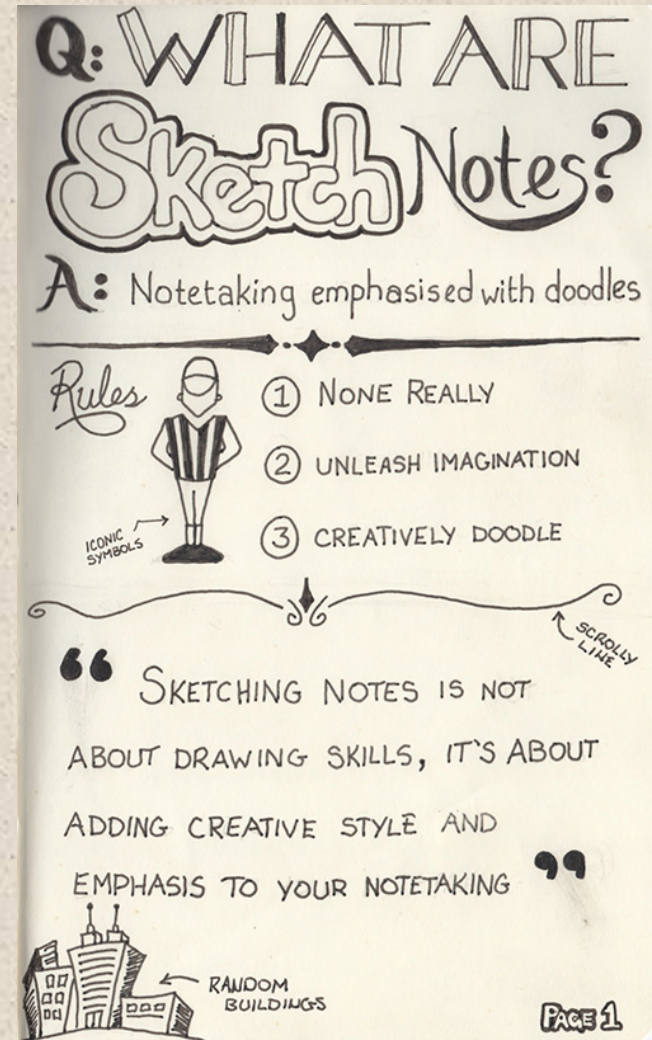 Q: WHAT ARE
Sketch Notes?
A: Notetaking emphasised with doodles
Rules
① NONE REALLY
② UNLEASH IMAGINATION
③ CREATIVELY DOODLE
ICONIC
SYMBOLS
SCROLLY
LINE
“ SKETCHING NOTES IS NOT
ABOUT DRAWING SKILLS, IT'S ABOUT
ADDING CREATIVE STYLE AND
EMPHASIS TO YOUR NOTETAKING ”
RANDOM
BUILDINGS
PAGE 1